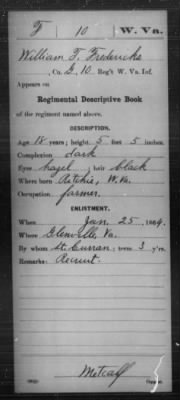 F 10 W. Va.
William T. Fredericks
, Co. G, 10 Reg't W. Va. Inf.
Appears on
Regimental Descriptive Book
of the regiment named above.
DESCRIPTION.
Age 18 years; height 5 feet 5 inches.
Complexion dark
Eyes hazel; hair black
Where born Ritchie, W. Va.
Occupation farmer.
ENLISTMENT.
When Jan. 25, 1864.
Where Glenville, Va.
By whom Lt. Curran; term 3 y'rs.
Remarks: Recruit.
Metcalf
Copyist.